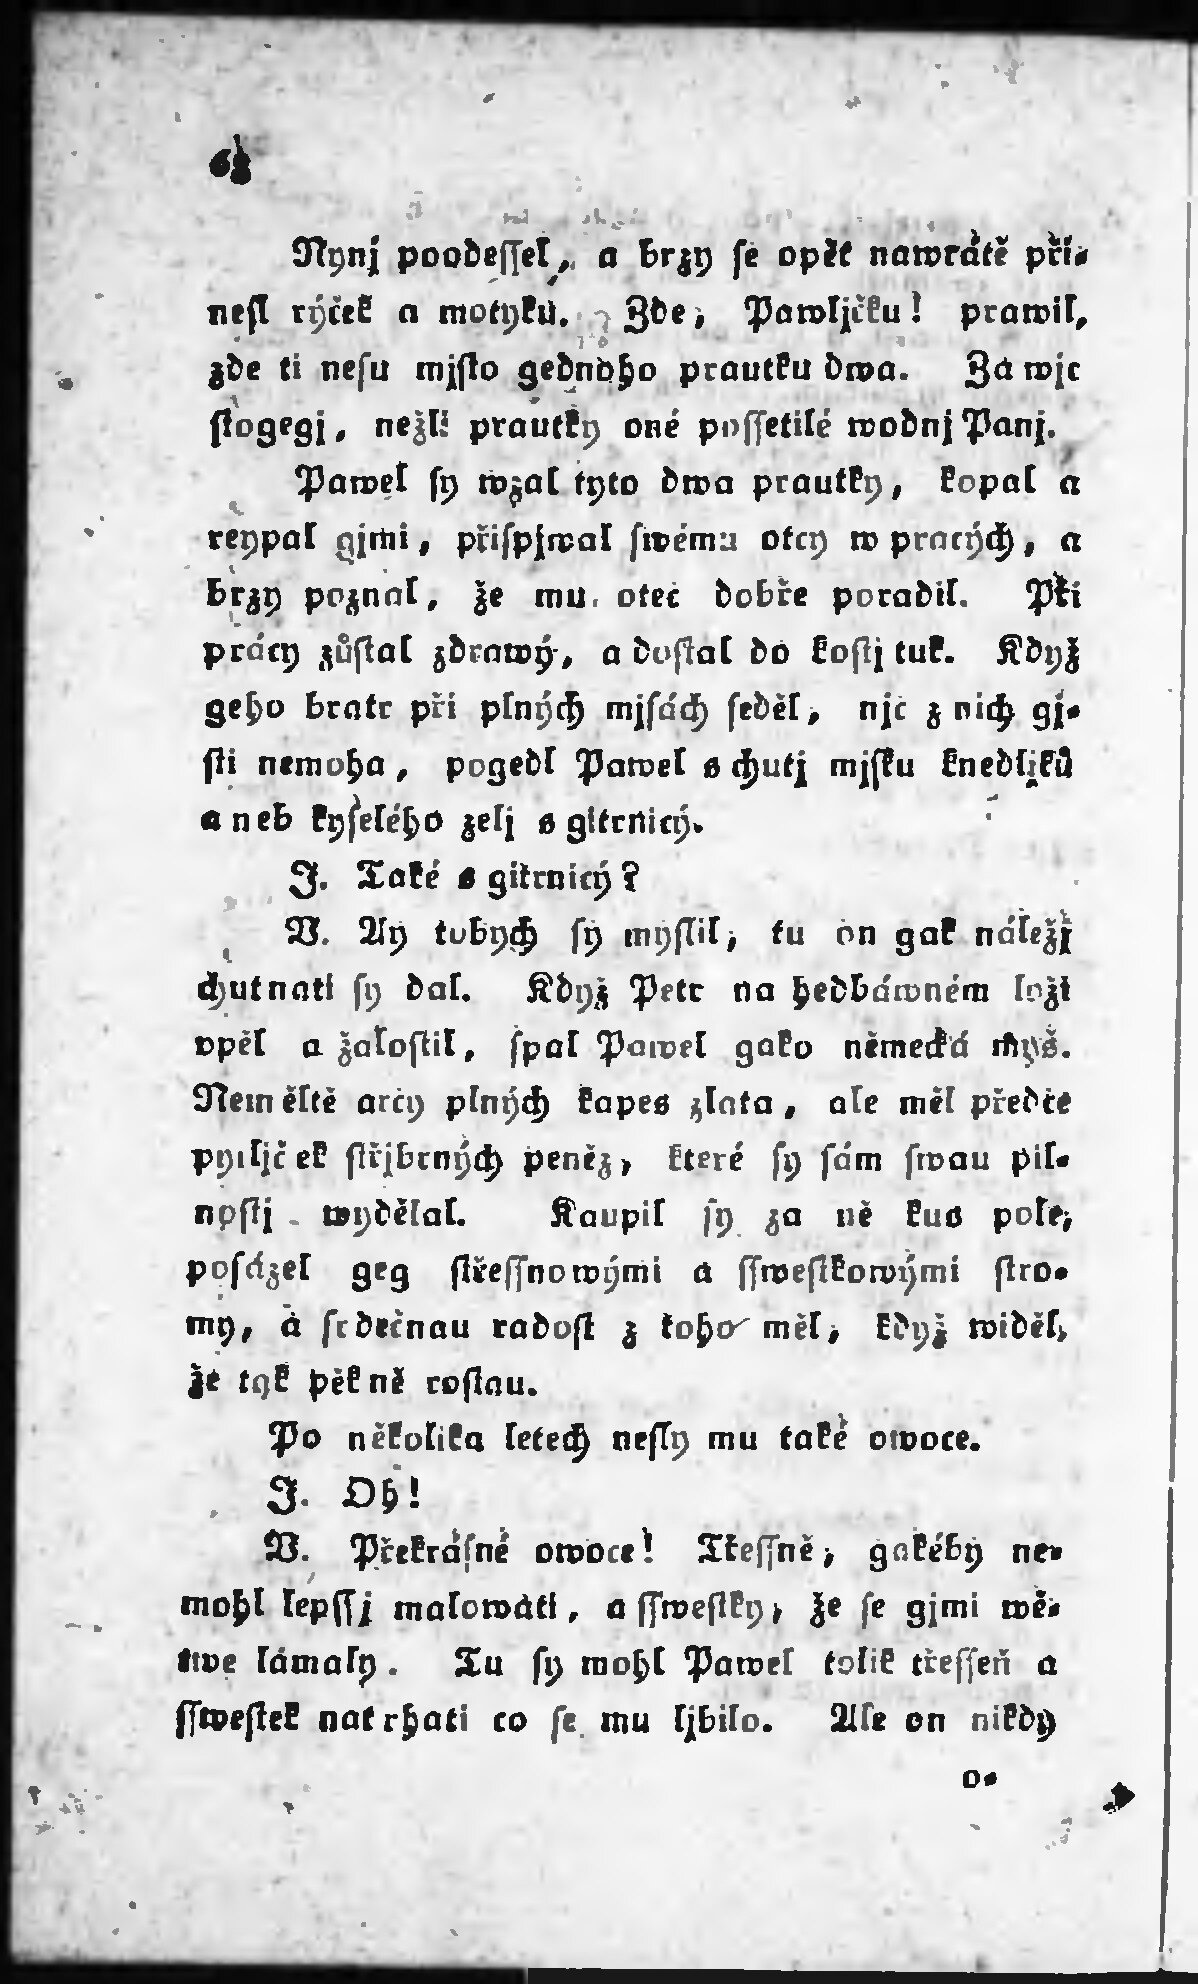 68
Nynj poodeſſel, a brzy ſe opět nawrátě při-
neſl rýček a motyku. Zde, Pawljčku! prawil,
zde ti neſu mjſto gednoho prautku dwa. Za wjc
ſtogegj, nežli prautky oné poſſetilé wodnj Panj.
Pawel ſy wzal tyto dwa prautky, kopal a
reypal gjmi, přiſpjwal ſwému otcy w pracých, a
brzy poznal, že mu otec dobře poradil. Při
prácy zůſtal zdrawý, a doſtal do koſtj tuk. Když
geho bratr při plných mjſách ſeděl, njc z nich gj-
ſti nemoha, pogedl Pawel s chutj mjſku knedljků
aneb kyſelého zelj s gitrnicý.
J. Také s gitrnicý?
V. Ay tobych ſy myſlil, tu on gak náležj
chutnati ſy dal. Když Petr na hedbáwném loži
vpěl a žaloſtil, ſpal Pawel gako německá myš.
Neměltě arcy plných kapes zlata, ale měl předce
pytljček ſtřjbrných peněz, které ſy ſám ſwau pil-
noſtj wydělal. Kaupil ſy za ně kus pole,
poſázel geg ſtřeſſnowými a ſſweſtkowými ſtro-
my, a ſrdečnau radoſt z toho měl, když widěl,
že tak pěkně roſtau.
Po několika letech neſly mu také owoce.
J. Oh!
V. Překráſné owoce! Třeſſně, gakéby ne-
mohl lepſſj malowati, a ſſweſtky, že ſe gjmi wě-
twe lámaly. Tu ſy mohl Pawel tolik třeſſeň a
ſſweſtek natrhati co ſe mu ljbilo. Ale on nikdy
o-